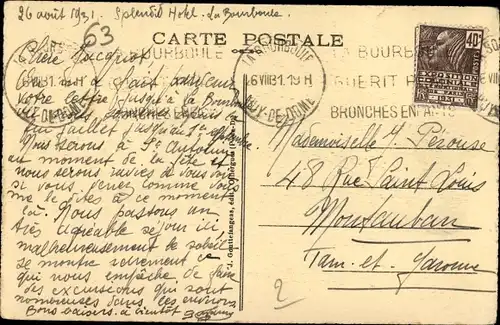 26 août 1931. Splendid Hotel. La Bourboule
63
CARTE POSTALE
LA BOURBOULE
GUERIT
BRONCHES ENFANTS
LA BOURBOULE
6 VIII 31. 19 H
PUY-DE-DOME
40c
EXPOSITION
Chère Jacquot
On a fait suivre
votre lettre jusqu'à la Bourboule
Juillet jusqu'au
Nous serons à St Antonin
au moment de la fête et
nous serons ravies de vous voir
si vous venez comme vous
me le dites à ce moment
là. Nous passons un
très agréable séjour ici,
malheureusement le soleil
se montre rarement ce
qui nous empêche de faire
des excursions qui sont
nombreuses dans les environs
Bons baisers. à bientôt
Mademoiselle J. Pérouse
48 Rue Saint Louis
Montauban
Tarn-et-Garonne
2